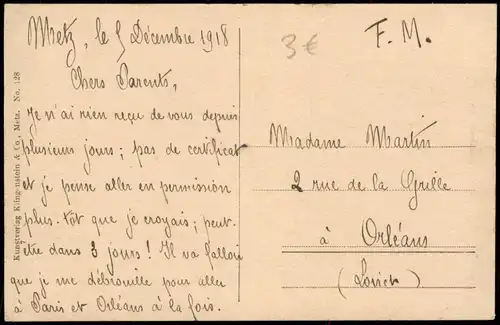 Metz, le 5 Décembre 1918
Chers Parents,
Je n'ai rien reçu de vous depuis
plusieurs jours ; pas de certificat
et je pense aller en permission
plus-tôt que je croyais ; peut-
être dans 3 jours ! Il va falloir
que je me débrouille pour aller
à Paris et Orléans à la fois.
Kunstverlag Klingenstein & Co., Metz. No. 128
3€
F. M.
Madame Martin
2 rue de la Grille
à Orléans
(Loiret)